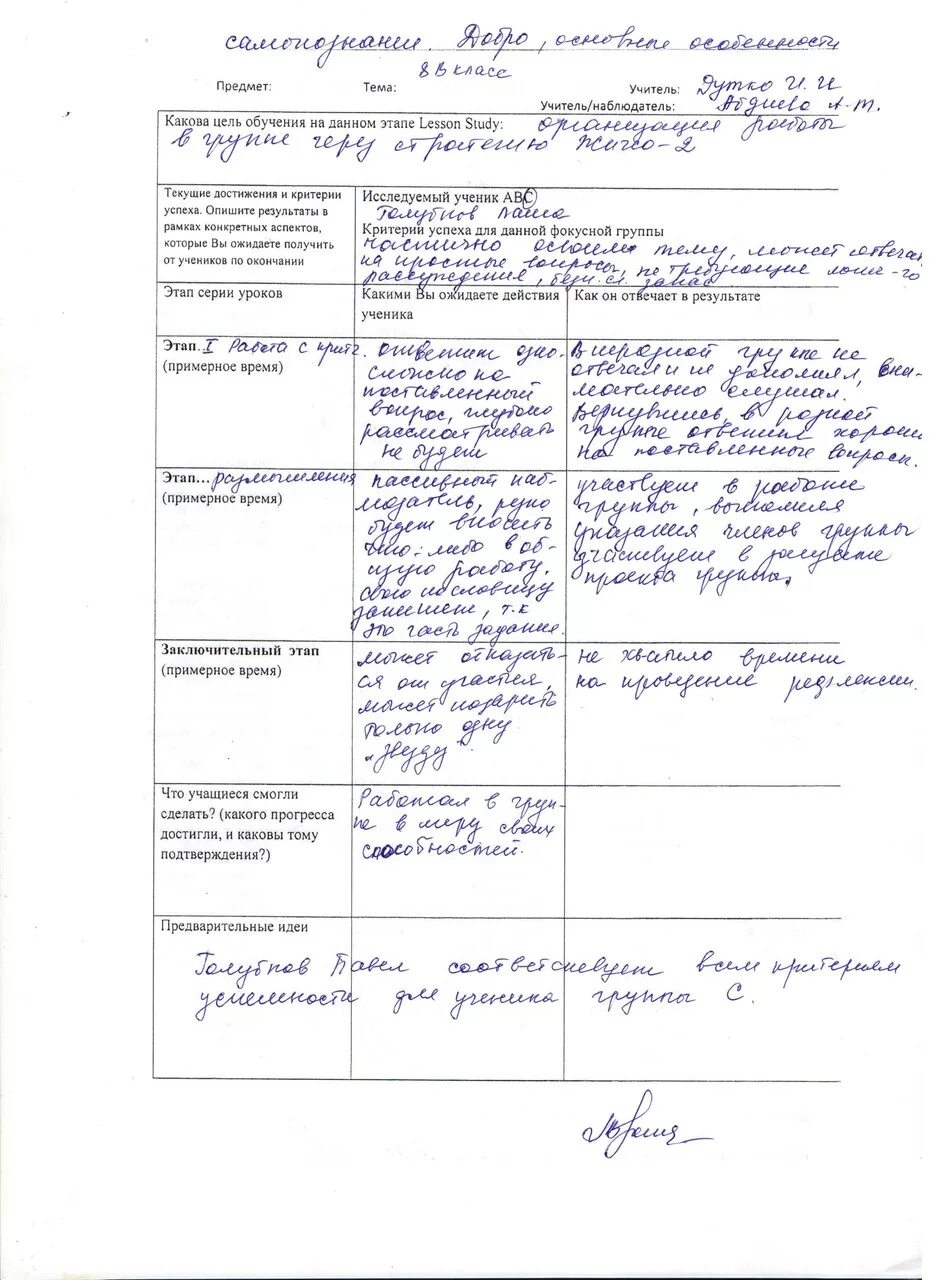 самопознание. Добро, основные особенности
8 В класс
Предмет: Тема: Учитель: Дутко И. И
Учитель/наблюдатель: Абдиева А.Т.
Какова цель обучения на данном этапе Lesson Study: организация работы
в группе через стратегию Жигсо-2
Текущие достижения и критерии
успеха. Опишите результаты в
рамках конкретных аспектов,
которые Вы ожидаете получить
от учеников по окончании
Исследуемый ученик АВС
Паша
Критерии успеха для данной фокусной группы
частично освоили тему, может отвечать
на простые вопросы, не требующие
рассуждения,
Этап серии уроков
Какими Вы ожидаете действия
ученика
Как он отвечает в результате
Этап..I Работа с
(примерное время)
ответит одно-
сложно на
поставленный
вопрос, глубоко
рассматривать
не будет
В группе не
отвечал и не дополнял, вни-
мательно слушал.
Вернувшись, в родной
группе ответил хорошо
на поставленные вопросы.
Этап...размышления
(примерное время)
пассивный наб-
людатель, редко
будет вносить
что-либо в об-
щую работу.
свою пословицу
запишет, т.к
это часть задания.
участвует в работе
группы, выполнял
указания членов группы
участвует в защите
проекта группы.
Заключительный этап
(примерное время)
может отказать-
ся от участия,
может подарить
только одну
„звезду"
не хватило времени
на проведение рефлексии.
Что учащиеся смогли
сделать? (какого прогресса
достигли, и каковы тому
подтверждения?)
Работал в груп-
пе в меру своих
способностей.
Предварительные идеи
Павел соответствует всем критериям
успешности для ученика группы С.